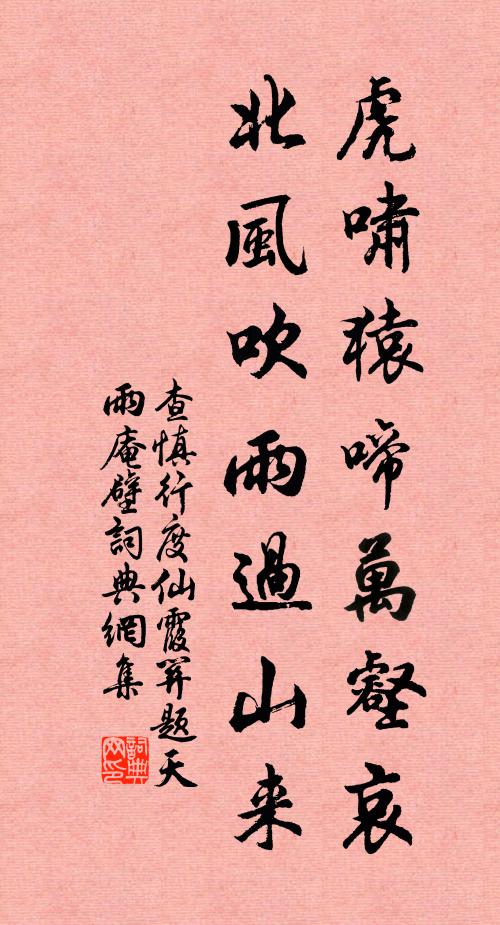 虎嘯猿啼萬壑哀
北風吹雨過山来
查慎行度仙霞关題天
雨庵壁詞典網集
詞典
网印